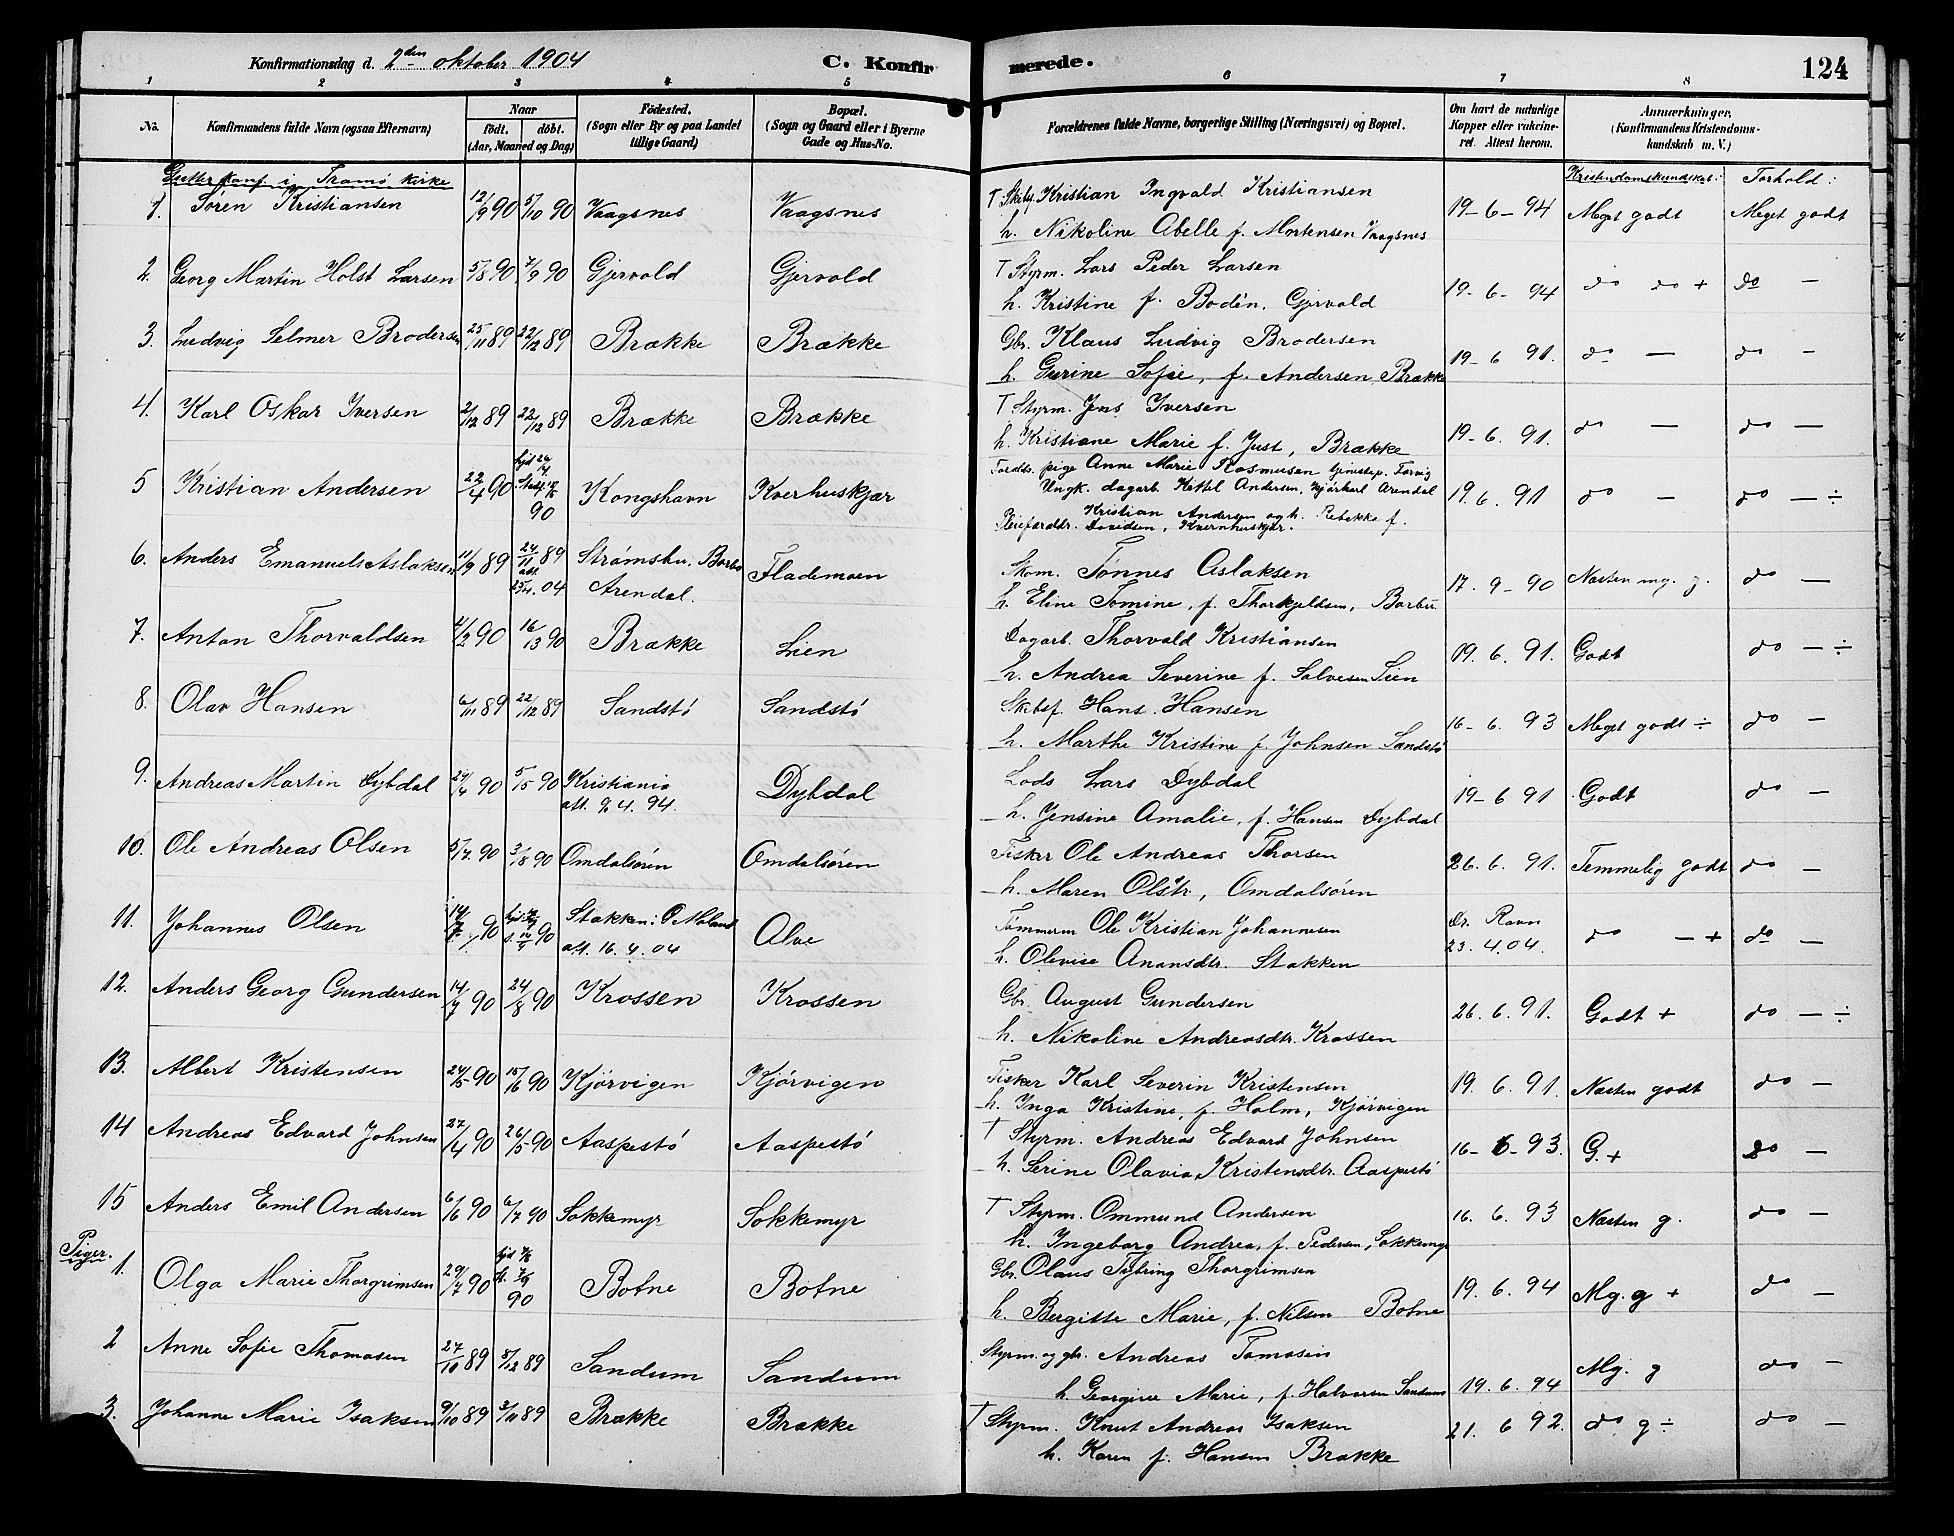 Konfirmationsdag d. 2den oktober 1904 C. Konfir merede. 124
1 2 3 4 5 6 7 8
No. Konfirmandens fulde Navn (ogsaa Efternavn) Naar født. døbt. (Aar, Maaned og Dag) Fødested. (Sogn eller By og paa Landet tillige Gaard) Bopæl. (Sogn og Gaard eller i Byerne Gade og Hus-No. Forældrenes fulde Navne, borgerlige Stilling (Næringsvei) og Bopæl. Om havt de naturlige Kopper eller vakcineret. Attest herom. Anmærkninger. (Konfirmandens Kristendomskundskab m. V.)
Gutter konf. i Tromø kirke Kristendomskundskab: Forhold:
1. Søren Kristiansen 12/9 90 5/10 90 Vaagsnes Vaagsnes † Skibsf. Kristian Ingvald Kristiansen
h. Nikoline Abelle f. Mortensen Vaagsnes 19-6-94 Meget godt Meget godt
2. Georg Martin Holst Larsen 5/8 90 7/9 90 Gjervold Gjervold † Styrm. Lars Peder Larsen
h. Kristine f. Bodén, Gjervold 19-6-94 do do + do —
3. Ludvig Selmer Brodersen 25/11 89 22/12 89 Brække Brække Gbr. Klaus Ludvig Brodersen
h. Gurine Sofie, f. Andersen Brække 19-6 91. do — do —
4. Karl Oskar Iversen 2/12 89 22/12 89 Brække Brække † Styrm. Jens Iversen
h. Kristiane Marie f. Just, Brække 19-6. 91. do — do —
5 Kristian Andersen 22/4 90 90 Kongshavn Kverhuskjær Forældr. pige Anne Marie Rasmusen
Ungk. dagarb. Kittel Andersen, Arendal 19. 6. 91 do — do — ÷
Pleieforældr. Kristian Andersen og h. Rebekka f. Davidsen, Kvernhuskjær.
6. Anders Emanuels Aslaksen 11/9 89 24/11 89 att. 04 Strømsbu, Barbo Arendal. Flademoen Skom. Tønnes Aslaksen
h. Eline Tomine, f. Thorkjeldsen, Barbu 17. 9-90 Næsten mg. g. do —
7. Anton Thorvaldsen 2/2 90 16/13 90 Brække Lien Dagarb. Thorvald Kristiansen
h. Andrea Severine f. Salvesen Lien 19. 6. 91. Godt do — ÷
8. Olav Hansen 6/11 89 22/12 89 Sandstø Sandstø Skibsf. Hans Hansen
h. Marthe Kristine f. Johnsen Sandstø 16-6. 93 Meget godt ÷ do —
9. Andreas Martin Dybdal 24/4 90 5/5 90 Kristiania att. 9/4. 94. Dybdal Lods Lars Dybdal
h. Jensine Amalie, f. Hansen Dybdal 19-6 91 Godt do —
10. Ole Andreas Olsen 5/7. 90 3/8 90 Omdalsøren Omdalsøren Fisker Ole Andreas Thorsen
h. Maren Olsdtr, Omdalsøren 26. 6. 91. Temmelig godt do —
11. Johannes Olsen 90 90 Stakken: Ø Moland att. 16. 4. 04 Alve Tømmerm Ole Kristian Johannesen
h. Olevise Anonsdtr. Stakken Dr. Ravn 23. 4. 04. do — + do —
12. Anders Georg Gundersen 14/7 90 24/8 90 Krossen Krossen Gbr. August Gundersen
h. Nikoline Andreasdtr. Krossen 26. 6. 91. Godt + do — ÷
13. Albert Kristensen 24/5 90 15/6 90 Kjørvigen Kjørvigen Fisker Karl Severin Kristensen
h. Inga Kristine, f. Holm, Kjørvigen 19. 6. 91. Næsten godt do —
14 Andreas Edvard Johnsen 27/4 90 26/5 90 Aaspestø Aaspestø † Styrm. Andreas Edvard Johnsen
h. Serine Olavia Kristensdtr. Aaspestø 16-6-93. G. + do —
15 Anders Emil Andersen 6/6 90 6/7 90 Sokkemyr Sokkemyr † Styrm. Ommund Andersen
h. Ingeborg Andrea, f. Pedersen, Sokkemyr 16. 6. 93 Næsten g. do —
Piger.
1. Olga Marie Thorgrimsen 29/7 90 90 Botne Botne Gbr. Olaus Thorgrimsen
h. Bergitte Marie, f. Nilsen Botne 19. 6. 94 Mg. g + do —
2 Anne Sofie Thomasen 27/10 89 8/12 89 Sandum Sandum Styrm. og gbr. Andreas Tomasen
h. Georgine Marie, f. Halvorsen Sandum 19. 6. 94 Mg. g do —
3. Johanne Marie Isaksen 9/10 89 3/11 89 Brække Brække † Styrm. Knut Andreas Isaksen
h. Karen f. Hansen Brække 21. 6 92. do g ÷ do —